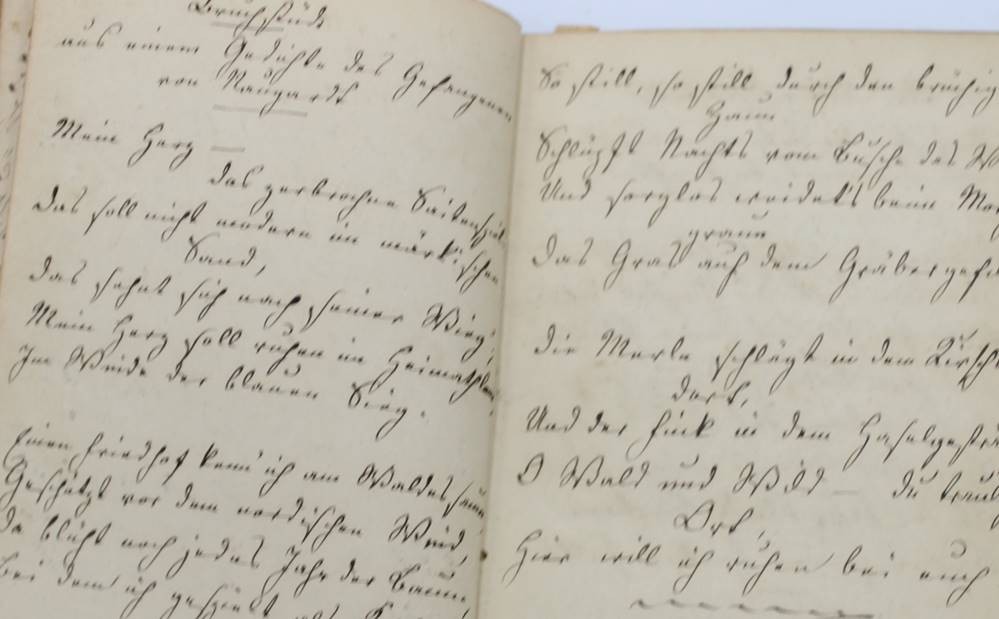 Bruchstück
aus einem Gedichte des Gefangenen
von Naugardt
Mein Herz —
das zerbrochne Saitenspiel
Das soll nicht modern im märk'schen
Sand,
Das sehnt sich nach seiner Wieg',
Mein Herz soll ruhen im Heimathland
Im Winde der blauen Sieg.
Einen Friedhof kenn' ich am Waldessaum
Geschützt vor dem nordischen Wind,
Da blüht noch jedes Jahr der Baum,
Bei dem ich gespielt als
So still, so still durch den brüchig
Zaun
Schlüpft Nachts vom Busche das
Und sorglos weidet's beim
graun
Das Gras auf dem
Die Merle schlägt in dem
dort,
Und der Fink in dem
O Wald und Wild — du
Ort,
Hier will ich ruhen bei euch